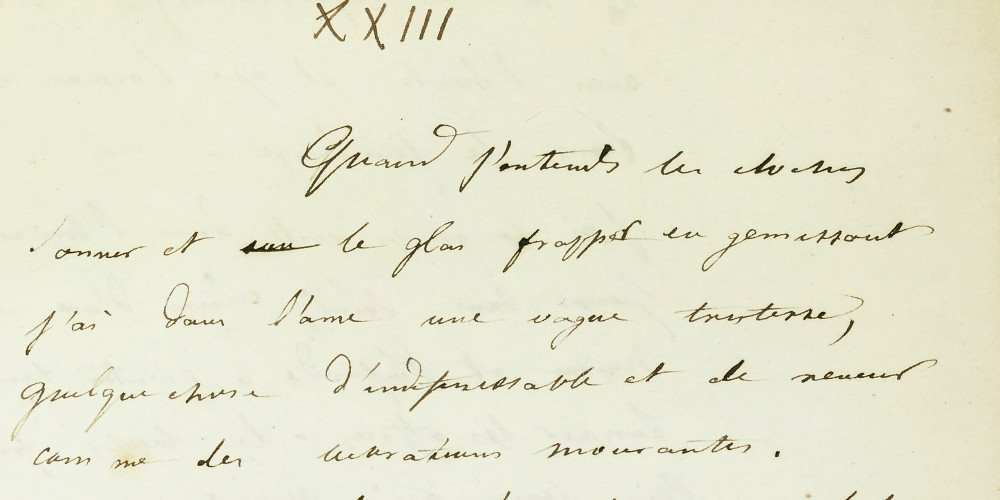 XXIII
Quand j'entends les cloches
sonner et le glas frapper en gemissant
j'ai dans l'ame une vague tristesse,
quelque chose d'indefinissable et de reveur
comme des vibrations mourantes.